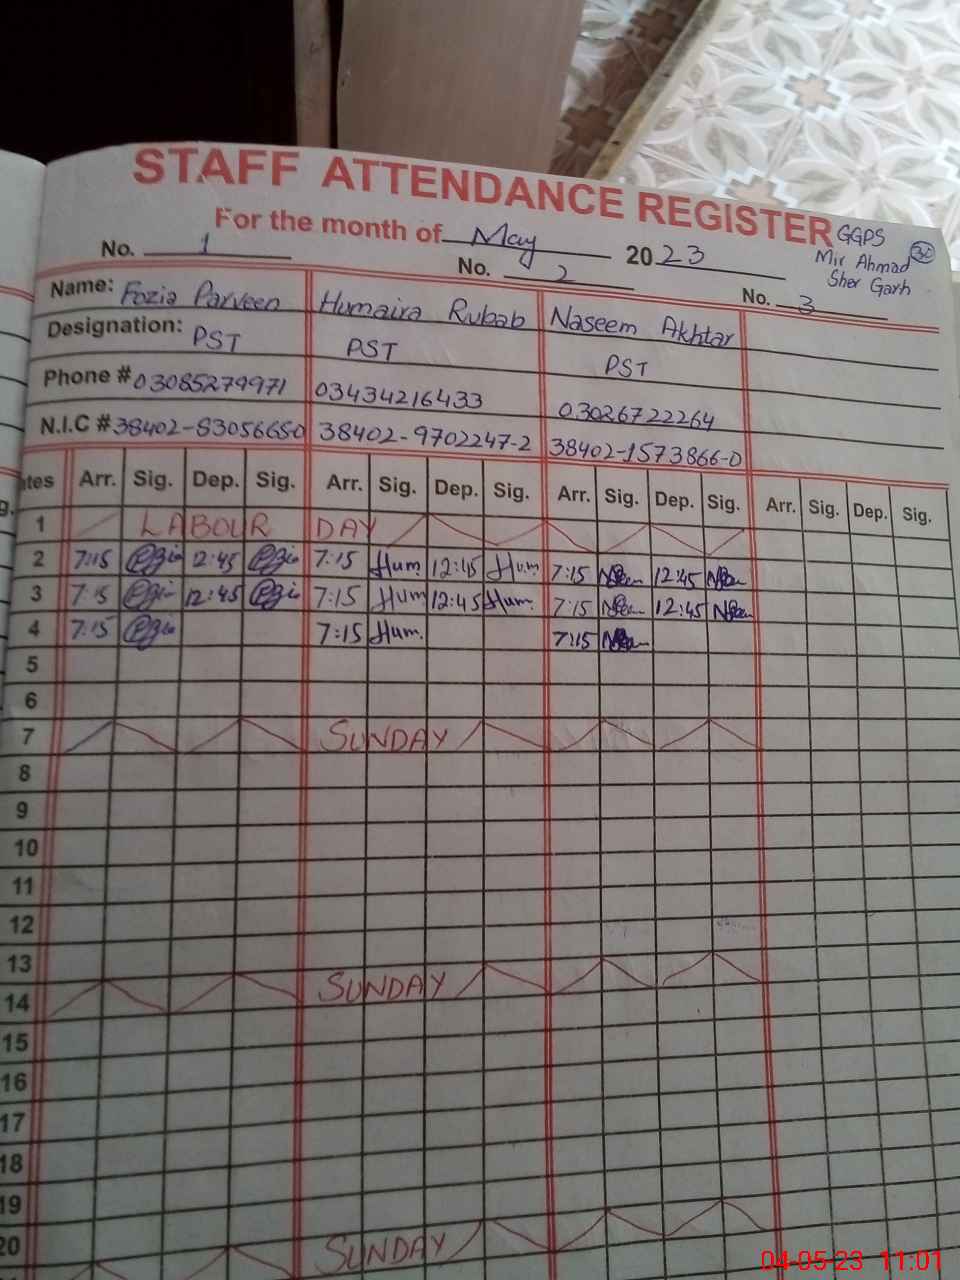 STAFF ATTENDANCE REGISTER
GGPS
Mir Ahmad
Sher Garh
30
For the month of May 2023
No. 1 No. 2 No. 3
Name: Fozia Parveen Humaira Rubab Naseem Akhtar
Designation: PST PST PST
Phone # 03085279971 03434216433 03026722264
N.I.C # 38402-8305665-0 38402-9702247-2 38402-1573866-0
ates Arr. Sig. Dep. Sig. Arr. Sig. Dep. Sig. Arr. Sig. Dep. Sig. Arr. Sig. Dep. Sig.
1 LABOUR DAY
2 7:15 12:45 7:15 Hum. 12:45 Hum 7:15 12:45
3 7:15 12:45 7:15 Hum 12:45 Hum. 7:15 12:45
4 7:15 7:15 Hum. 7:15
5
6
7 SUNDAY
8
9
10
11
12
13
14 SUNDAY
15
16
17
18
19
20 SUNDAY
04-05-23 11:01